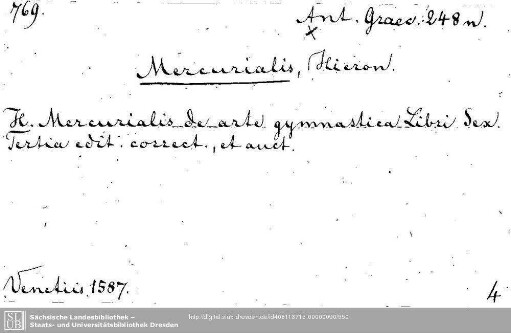 769.
Ant. Graec. 248 n.
X
Mercurialis, Hieron.
H. Mercurialis de arte gymnastica Libri Sex.
Tertia edit. correct., et auct.
Venetiis 1587.
4
SLUB
Sächsische Landesbibliothek –
Staats- und Universitätsbibliothek Dresden